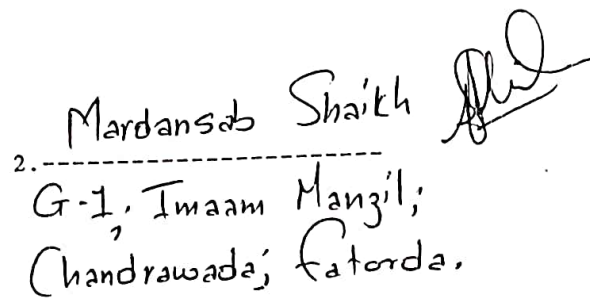 Mardansab Shaikh
2.------------------------
G-1, Imaam Manzil;
Chandrawada; Fatorda.